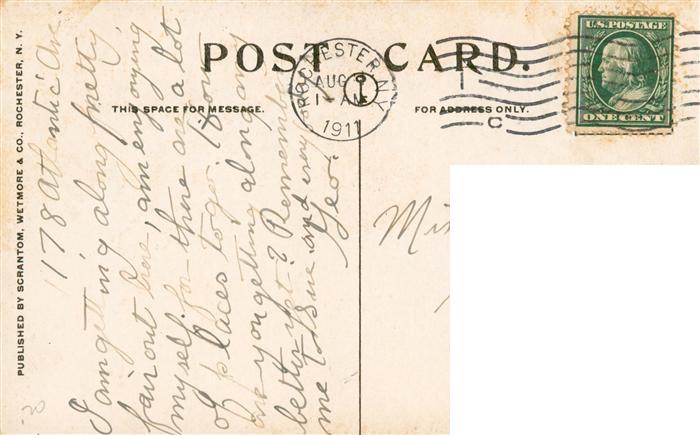 POST CARD.
THIS SPACE FOR MESSAGE.
FOR ADDRESS ONLY.
PUBLISHED BY SCRANTOM, WETMORE & CO., ROCHESTER, N. Y.
ROCHESTER, N.Y.
AUG
1 - AM
1911
C
U.S. POSTAGE
ONE CENT
178 Atlantic Ave.
I am getting along pretty
fair out here, am enjoying
myself for there are a lot
of places to go. How
are you getting along any
better yet? Remember
me to Sue and
Geo.